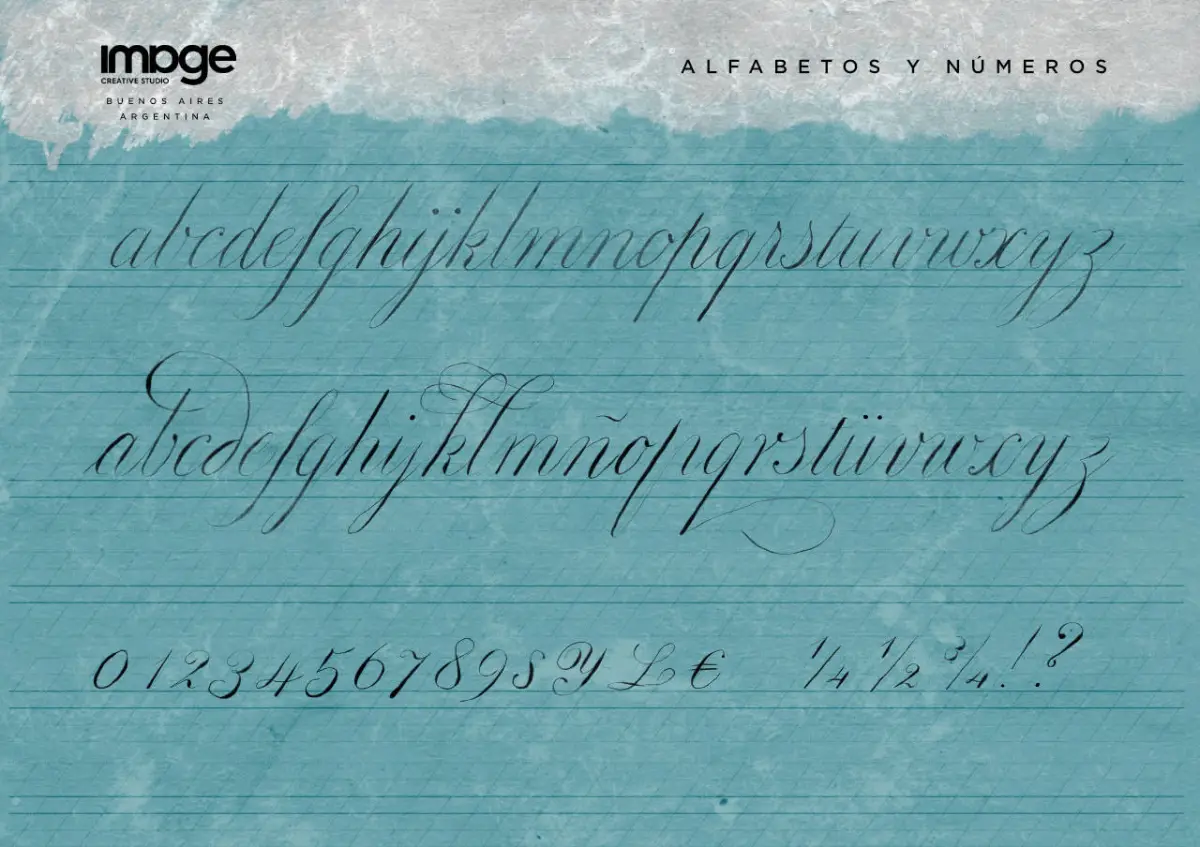 image
CREATIVE STUDIO
BUENOS AIRES
ARGENTINA
ALFABETOS Y NÚMEROS
abcdefghijklmnopqrstuvwxyz
abcdefghijklmñopqrstüvwxyz
0 1 2 3 4 5 6 7 8 9 8 Y £ € 1/4 1/2 3/4 . ! ?